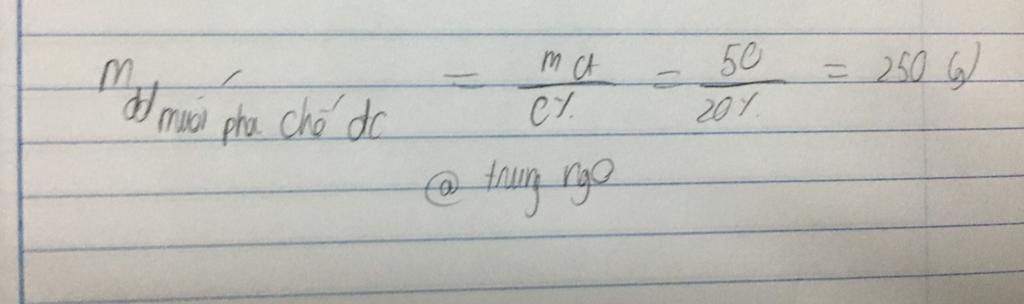 m dd muối pha chế dc = m ct / C% = 50 / 20% = 250 (g)
@ trung ngo